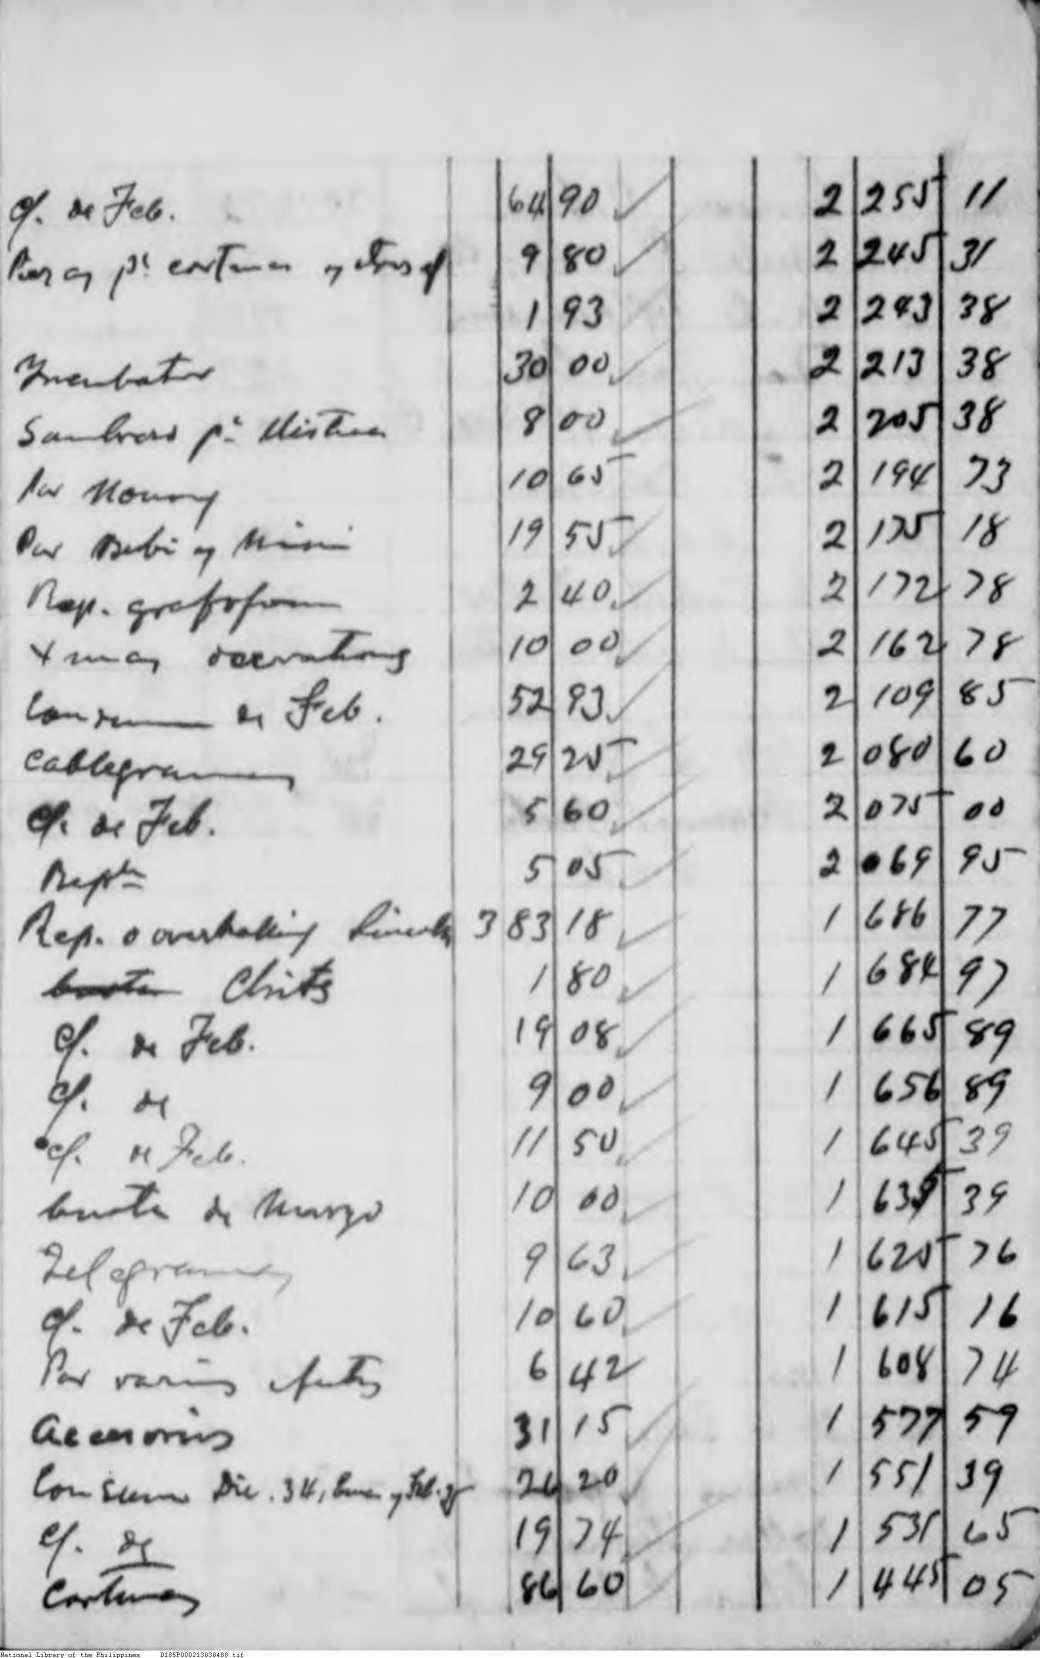 Cf. de Feb. 64 90 2 255 11
Piezas pa cortinas y otros ef 9 80 2 245 31
1 93 2 243 38
Incubator 30 00 2 213 38
Sombrero pa 8 00 2 205 38
Por Nonong 10 65 2 194 73
Por Bebi y Mini 19 55 2 175 18
Rep. grafofono 2 40 2 172 78
Xmas decorations 10 00 2 162 78
Consumo de Feb. 52 93 2 109 85
Cablegramas 29 25 2 080 60
Cf. de Feb. 5 60 2 075 00
5 05 2 069 95
Rep. o overhalling Lincoln 3 83 18 1 686 77
Chits 1 80 1 684 97
Cf. de Feb. 19 08 1 665 89
Cf. de 9 00 1 656 89
Cf. de Feb. 11 50 1 645 39
cuota de Marzo 10 00 1 635 39
Telegramas 9 63 1 625 76
Cf. de Feb. 10 60 1 615 16
Por varios efectos 6 42 1 608 74
Accesorios 31 15 1 577 59
Consumo Dic. 34, Ene. y Feb. 35 26 20 1 551 39
Cf. de 19 74 1 531 65
Cortinas 86 60 1 445 05
National Library of the Philippines D185P000213838488.tif